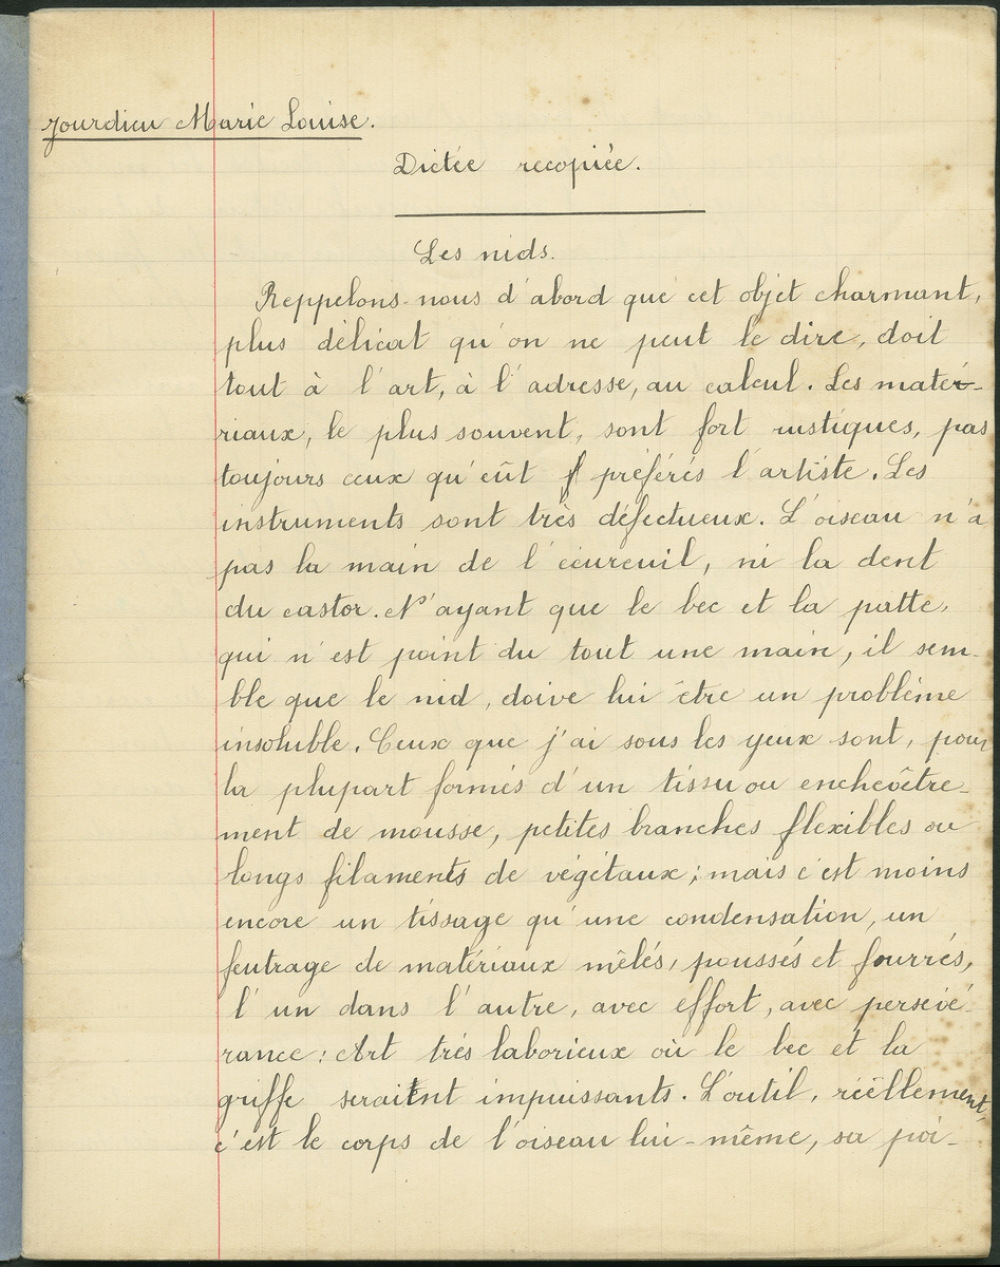 Jourdieu Marie Louise.
Dictée recopiée.
Les nids.
Reppelons-nous d'abord que cet objet charmant,
plus délicat qu'on ne peut le dire, doit
tout à l'art, à l'adresse, au calcul. Les maté-
riaux, le plus souvent, sont fort rustiques, pas
toujours ceux qu'eût préférés l'artiste. Les
instruments sont très défectueux. L'oiseau n'a
pas la main de l'écureuil, ni la dent
du castor. N'ayant que le bec et la patte,
qui n'est point du tout une main, il sem-
ble que le nid, doive lui être un problème
insoluble. Ceux que j'ai sous les yeux sont, pour
la plupart formés d'un tissu ou encheôetre-
ment de mousse, petites branches flexibles ou
longs filaments de végétaux; mais c'est moins
encore un tissage qu'une condensation, un
feutrage de matériaux mêlés, poussés et fourrés,
l'un dans l'autre, avec effort, avec persévé-
rance: Art très laborieux où le bec et la
griffe seraient impuissants. L'outil, réellement,
c'est le corps de l'oiseau lui-même, sa poi-